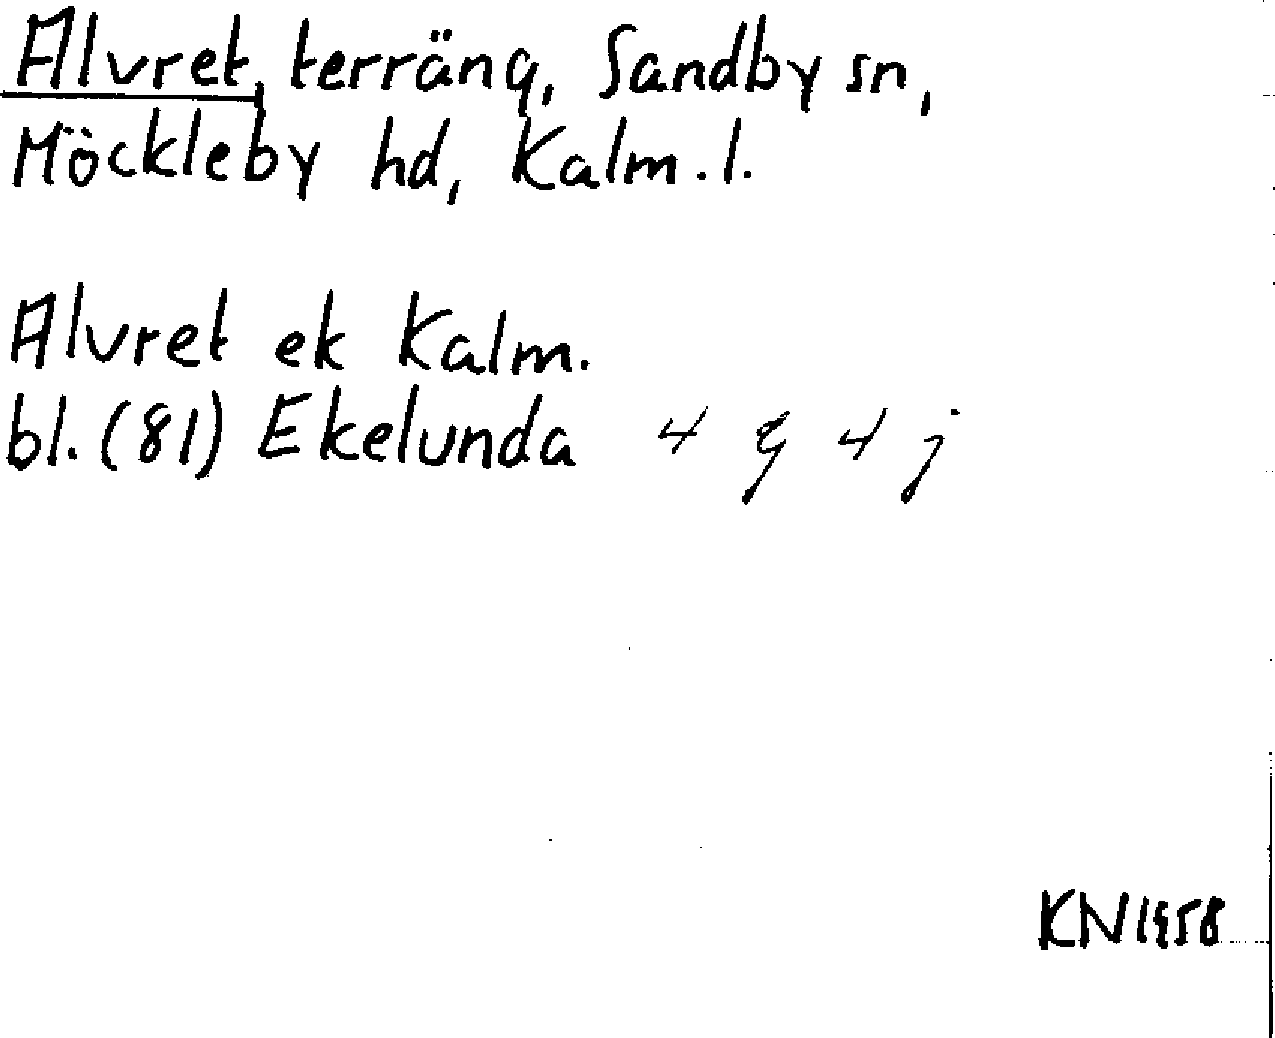 Alvret, terräng, Sandby sn,
Möckleby hd, Kalm. l.
Alvret ek Kalm.
bl. (81) Ekelunda 4 g 4 j
KN 1958